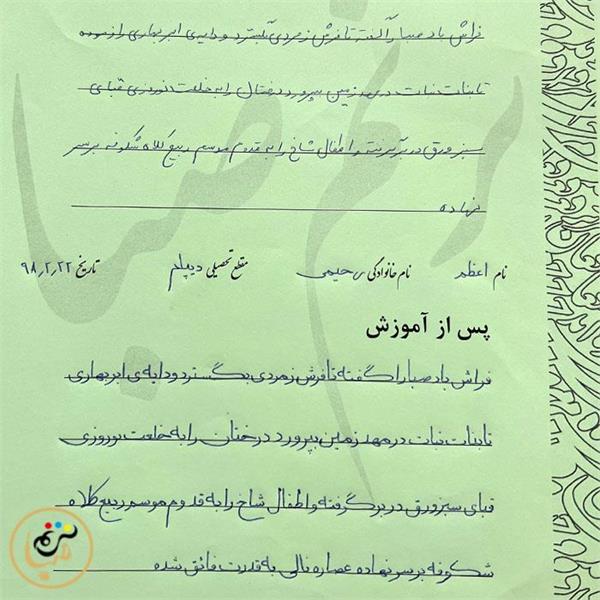 فراش باد صبا را گفته تا فرش زمردی بگسترد و دایه ی ابر بهاری را فرموده
تا بنات نبات در مهد زمین بپرورد درختان را به خلعت نوروزی قبای
سبز ورق در بر گرفته و اطفال شاخ را به قدوم موسم ربیع کلاه شکوفه بر سر
نهاده
نام اعظم نام خانوادگی رحیمی مقطع تحصیلی دیپلم تاریخ ۹۸٫۲٫۲۲
پس از آموزش
فراش باد صبا را گفته تا فرش زمردی بگسترد و دایه ی ابر بهاری
تا بنات نبات در مهد زمین بپرورد درختان را به خلعت نوروزی
قبای سبز ورق در بر گرفته و اطفال شاخ را به قدوم موسم ربیع کلاه
شکوفه بر سر نهاده عصاره نالی به قدرت فائق شده
ترنم صبا